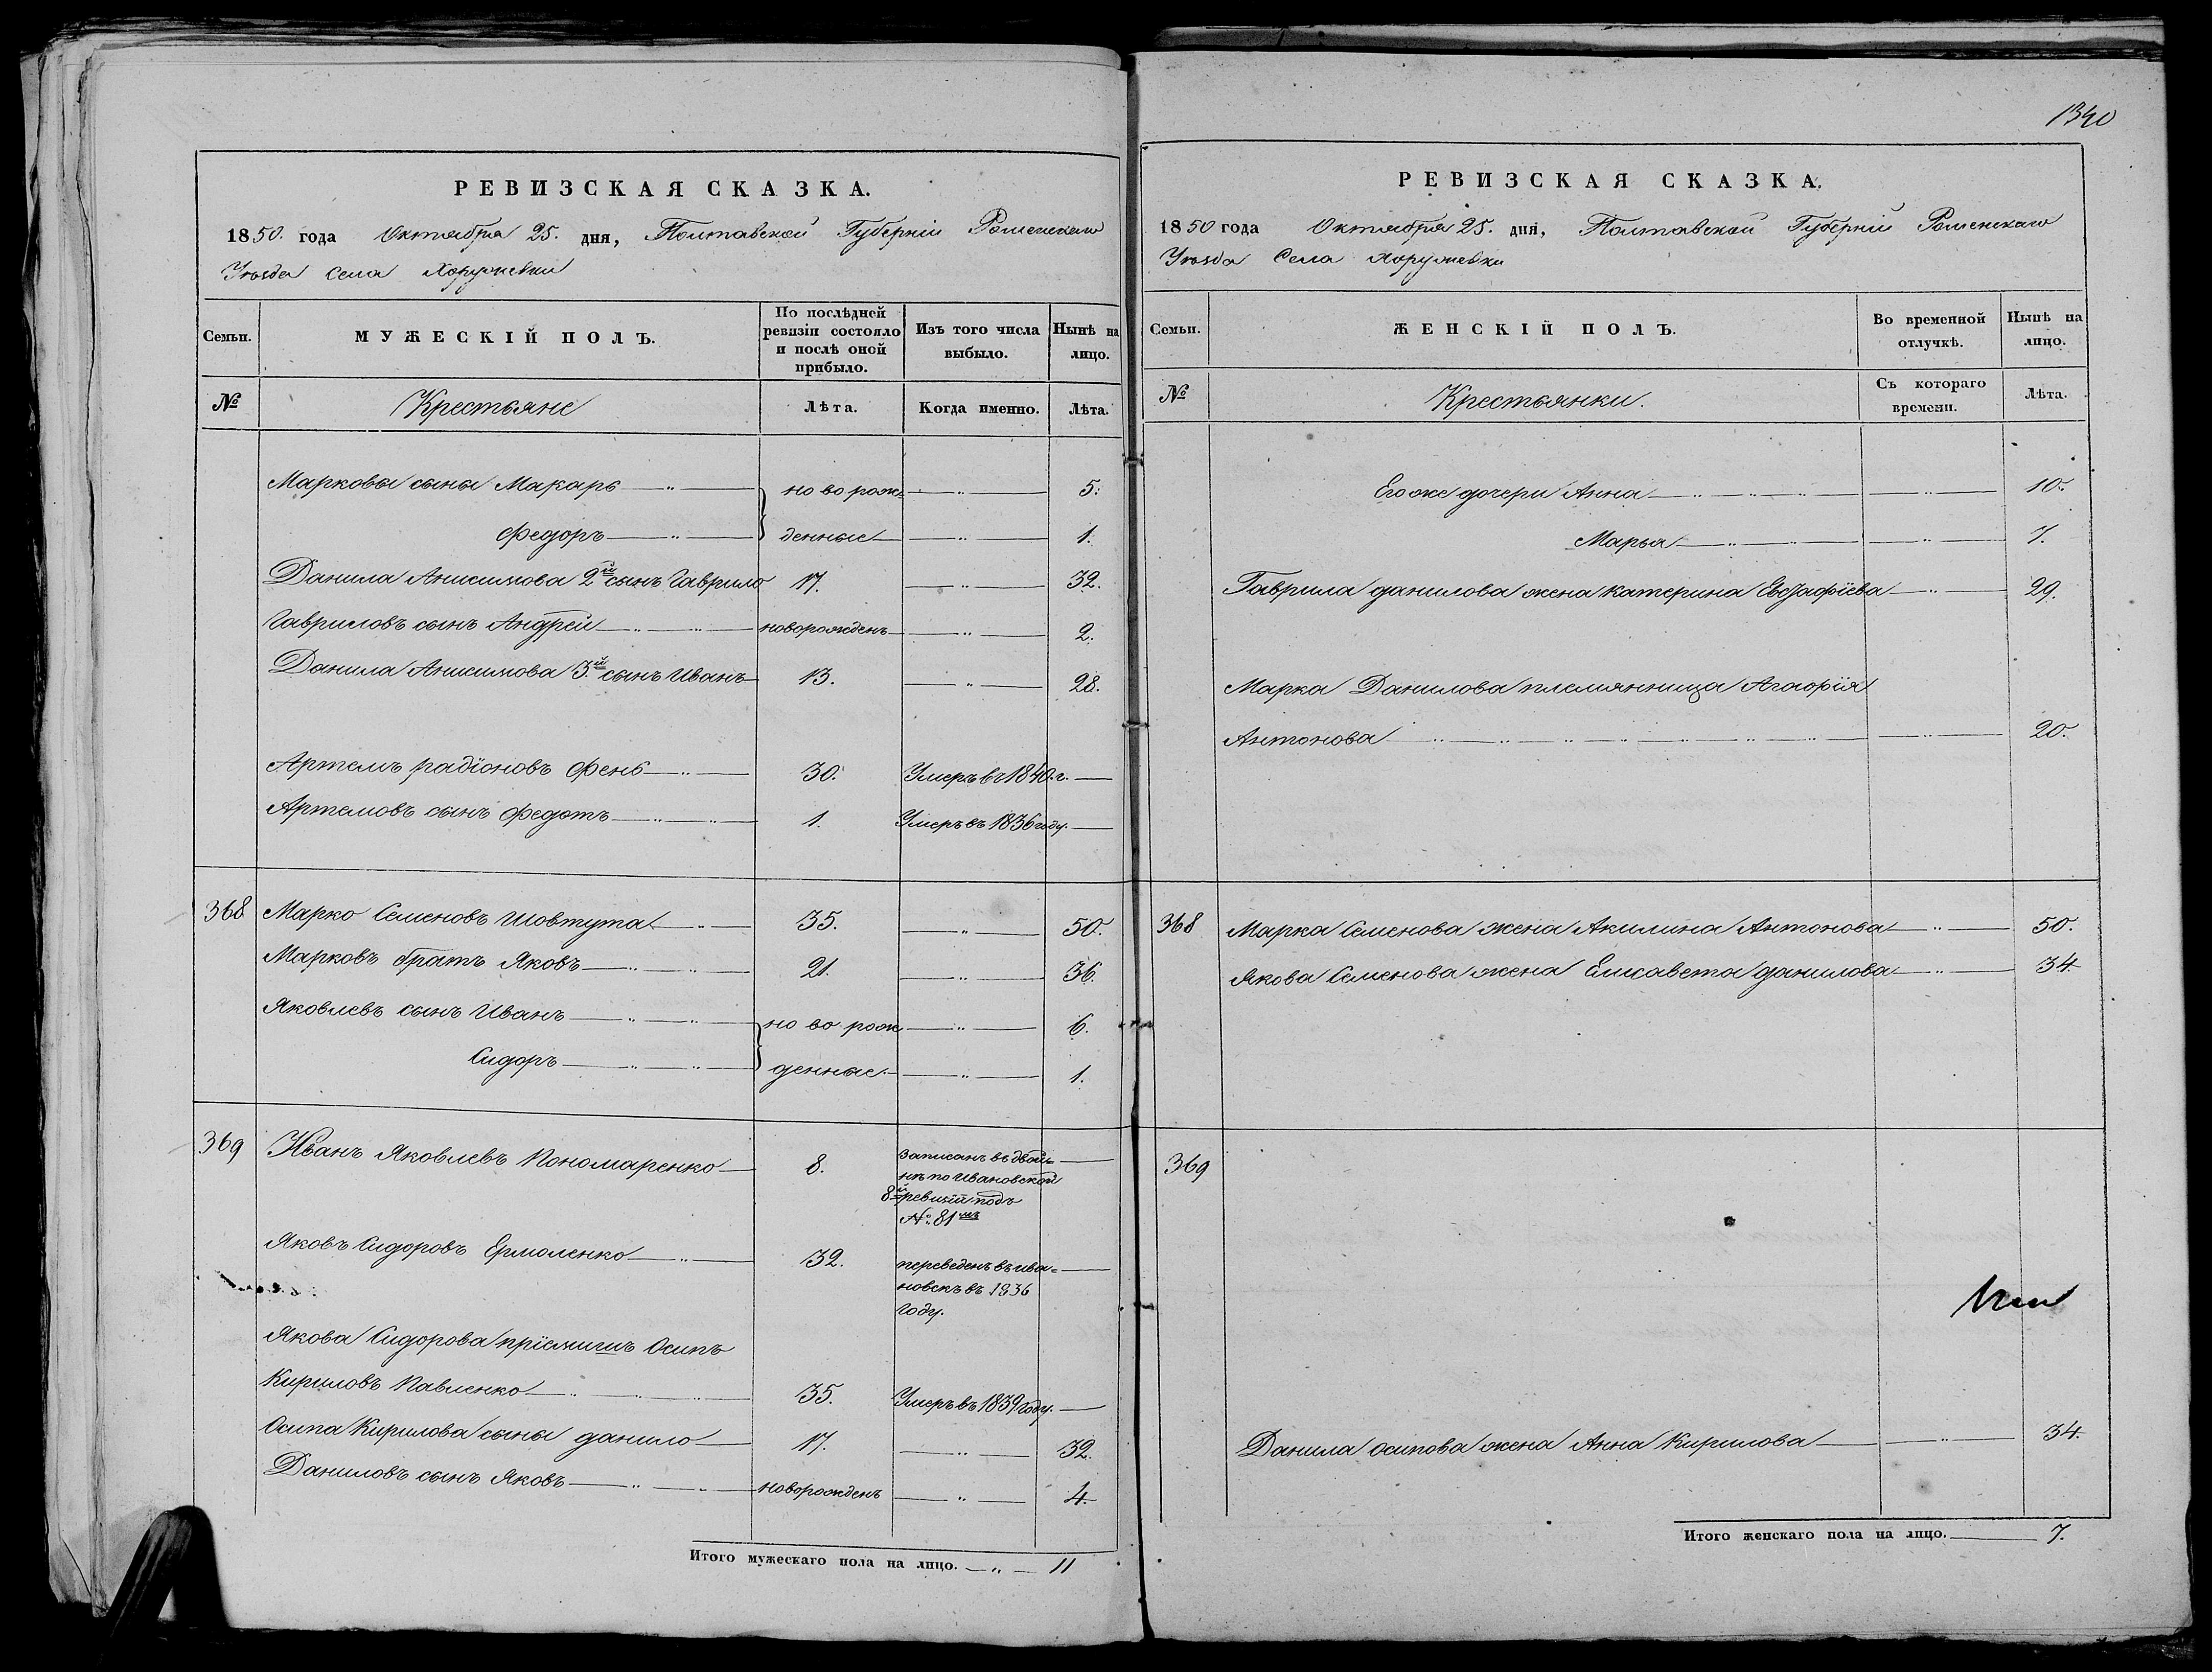 РЕВИЗСКАЯ СКАЗКА.
1850. года Октября 25. дня, Полтавской Губерніи Роменскаго
Уѣзда Села Хоружевки
Семьи.
МУЖЕСКІЙ ПОЛЪ.
По послѣдней
ревизіи состояло
и послѣ оной
прибыло.
Изъ того числа
выбыло.
Нынѣ на
лицо.
№
Крестьяне
Лѣта.
Когда именно.
Лѣта.
Марковы сыны Макаръ — „ — но во рож= — „ — 5.
Федоръ — „ — денные — „ — 1.
Данила Анисимова 2й сынъ Гаврило 17. — „ — 32.
Гавриловъ сынъ Андрей — „ — „ — новорожденъ — „ — 2.
Данила Анисимова 3.й сынъ Иванъ — 13. — „ — 28.
Артемъ радіоновъ Фень — „ — 30. Умеръ в 1840. г. —
Артемовъ сынъ Федотъ — „ — „ — 1. Умеръ въ 1836 году. —
368 Марко Семеновъ Шовтута — „ — 35. — „ — 50.
Марковъ братъ Яковъ — „ — „ — 21. — „ — 36.
Яковлевъ сынъ Иванъ — „ — „ — но во рож — „ — 6.
Сидоръ — „ — „ — денные. — „ — 1.
369 Иванъ Яковлевъ Пономаренко — 8. записанъ въ двой= —
нѣ по Ивановской
8й ревизіи подъ
№. 81мъ
Яковъ Сидоровъ Ермоленко — „ — 32. переведенъ въ ива= —
новскъ въ 1836
году.
Якова Сидорова пріемишъ Осипъ
Кириловъ Павленко — „ — „ — 35. Умеръ въ 1839 году. —
Осипа Кирилова сыны данило — 17. — „ — 32.
Даниловъ сынъ Яковъ — „ — „ — новорожденъ — „ — 4.
Итого мужескаго пола на лицо. — „ — 11
1340
РЕВИЗСКАЯ СКАЗКА.
1850 года Октября 25. дня, Полтавской Губерніи Роменскаго
Уѣзда Села Хоружевки
Семьи.
ЖЕНСКІЙ ПОЛЪ.
Во временной
отлучкѣ.
Нынѣ на
лицо.
№
Крестьянки.
Съ котораго
времени.
Лѣта.
Егоже дочери Анна — „ — „ — „ — — „ — 10.
Марья — „ — „ — — „ — 7.
Гаврила данилова жена катерина Евстафіева — „ — 29.
Марка Данилова племянница Агафія
Антонова — „ — „ — „ — „ — „ — „ — „ — — „ — 20.
368 Марка Семенова жена Акилина Антонова — „ — 50.
Якова Семенова жена Елисавета данилова — „ — 34.
369
Данила осипова жена Анна Кирилова — — „ — 34.
Итого женскаго пола на лицо. — 7.